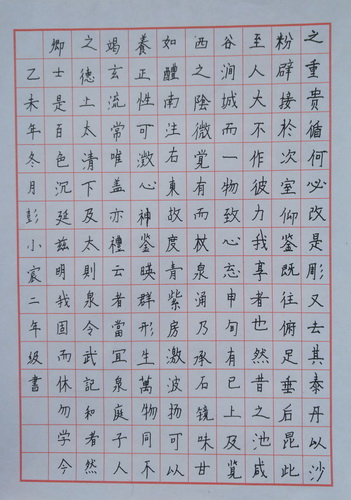 之重貴循何必改是彫又去其泰丹以沙
粉辟接於次室仰鉴既往俯足垂后昆此
至人大不作彼力我享者也然昔之池咸
谷涧城而一物致心忘申旬有已上及覽
西之陰微覺有而杖泉涌乃承石镜味甘
如醴南注右東故度青紫房激波揚可以
養正性可澂心神鉴暎群形生萬物同不
竭玄流常唯盖亦禮云者當冝泉庭子人
之德上太清下及太則泉今武記和者然
卿士是百色沉延兹明我固而休勿学今
乙未年冬月彭小宸二年级書